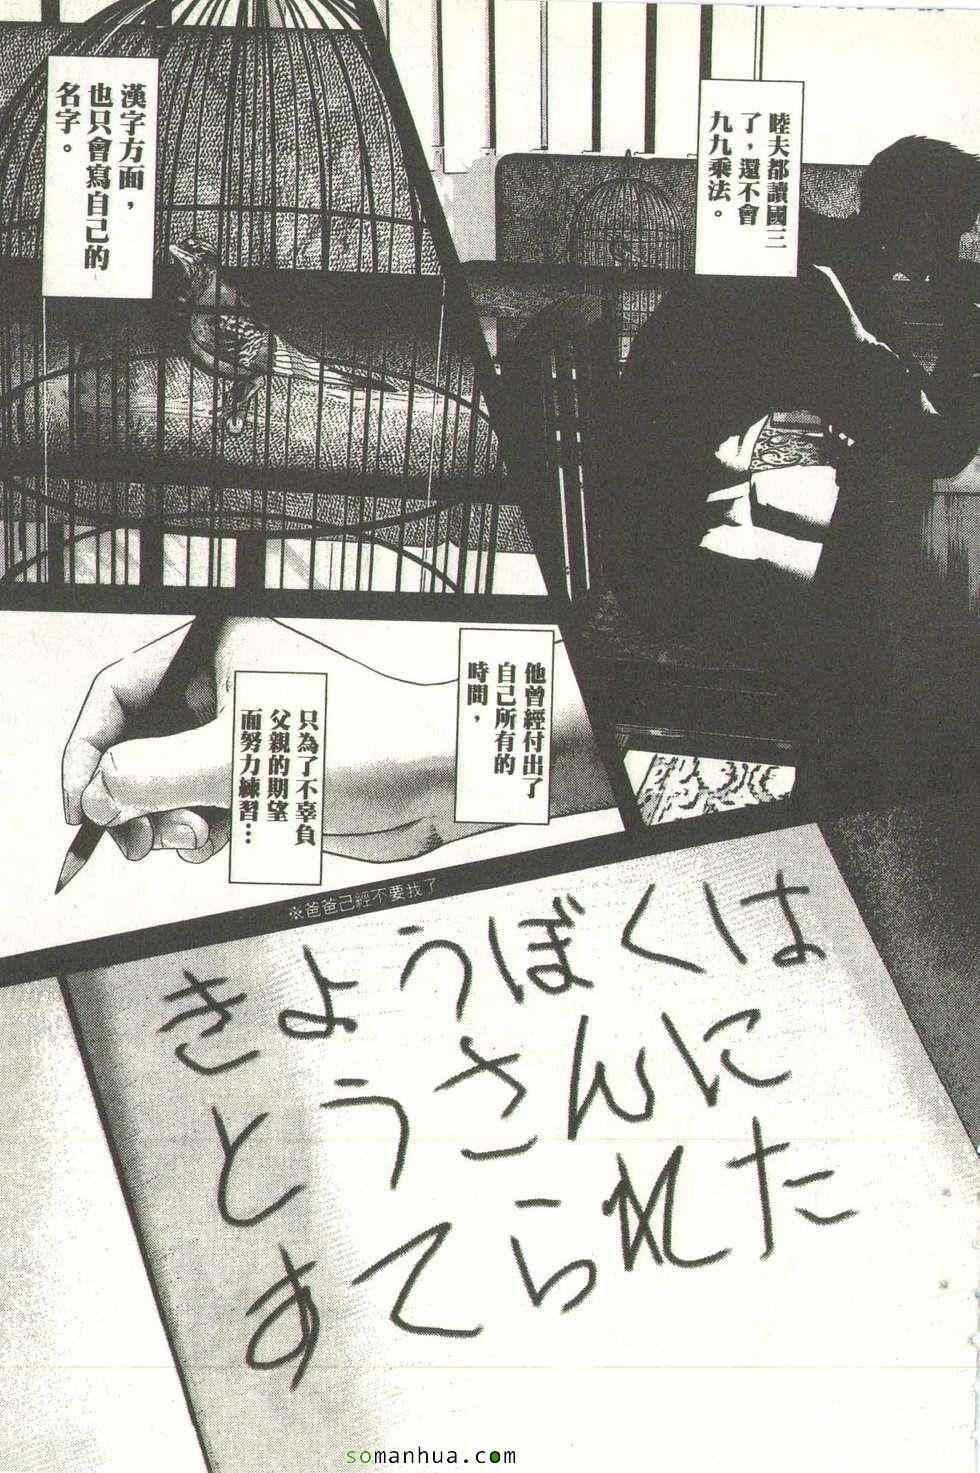 睦夫都讀國三
了，還不會
九九乘法。
漢字方面，
也只會寫自己的
名字。
他曾經付出了
自己所有的
時間，
只為了不辜負
父親的期望
而努力練習…
※爸爸已經不要我了
きようぼくは
とうさんに
すてられた
somanhua.com